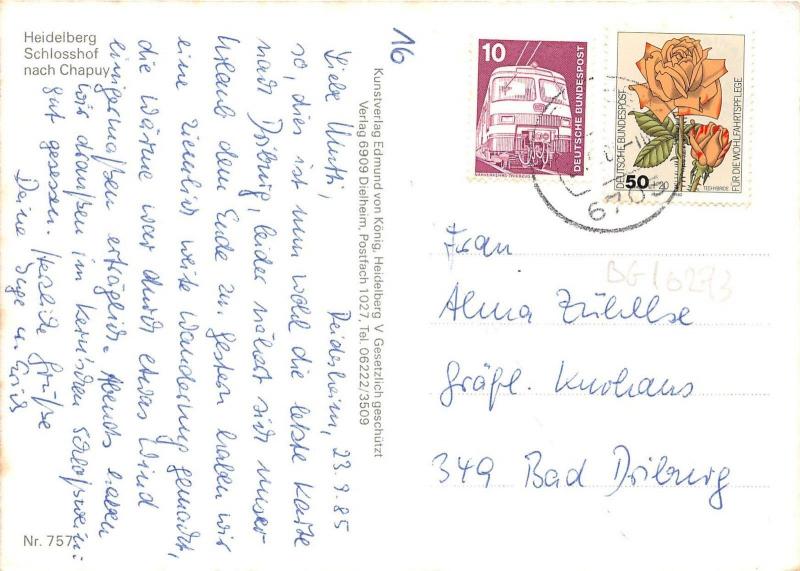 Heidelberg
Schlosshof
nach Chapuy
Nr. 757
16
Deidesheim, 23.9.85
Liebe Mutti,
so, dies ist nun wohl die letzte Karte
nach Driburg, leider nähert sich unser
Urlaub dem Ende zu. Gestern haben wir
eine ziemlich weite Wanderung gemacht,
die Wärme war durch etwas Wind
einigermaßen erträglich. Abends haben
wir draußen im schloßwein:
gut gesessen. Herzliche Grüße
Deine Inge u. Erich
Kunstverlag Edmund von König, Heidelberg V Gesetzlich geschützt
Verlag 6909 Dielheim, Postfach 1027, Tel. 06222/3509
10
DEUTSCHE BUNDESPOST
DEUTSCHE BUNDESPOST
50+20
FÜR DIE WOHLFAHRTSPFLEGE
TEEHYBRIDE
6705
Frau
Alma Zühlke
Gräfl. Kurhaus
349 Bad Driburg
BG10293